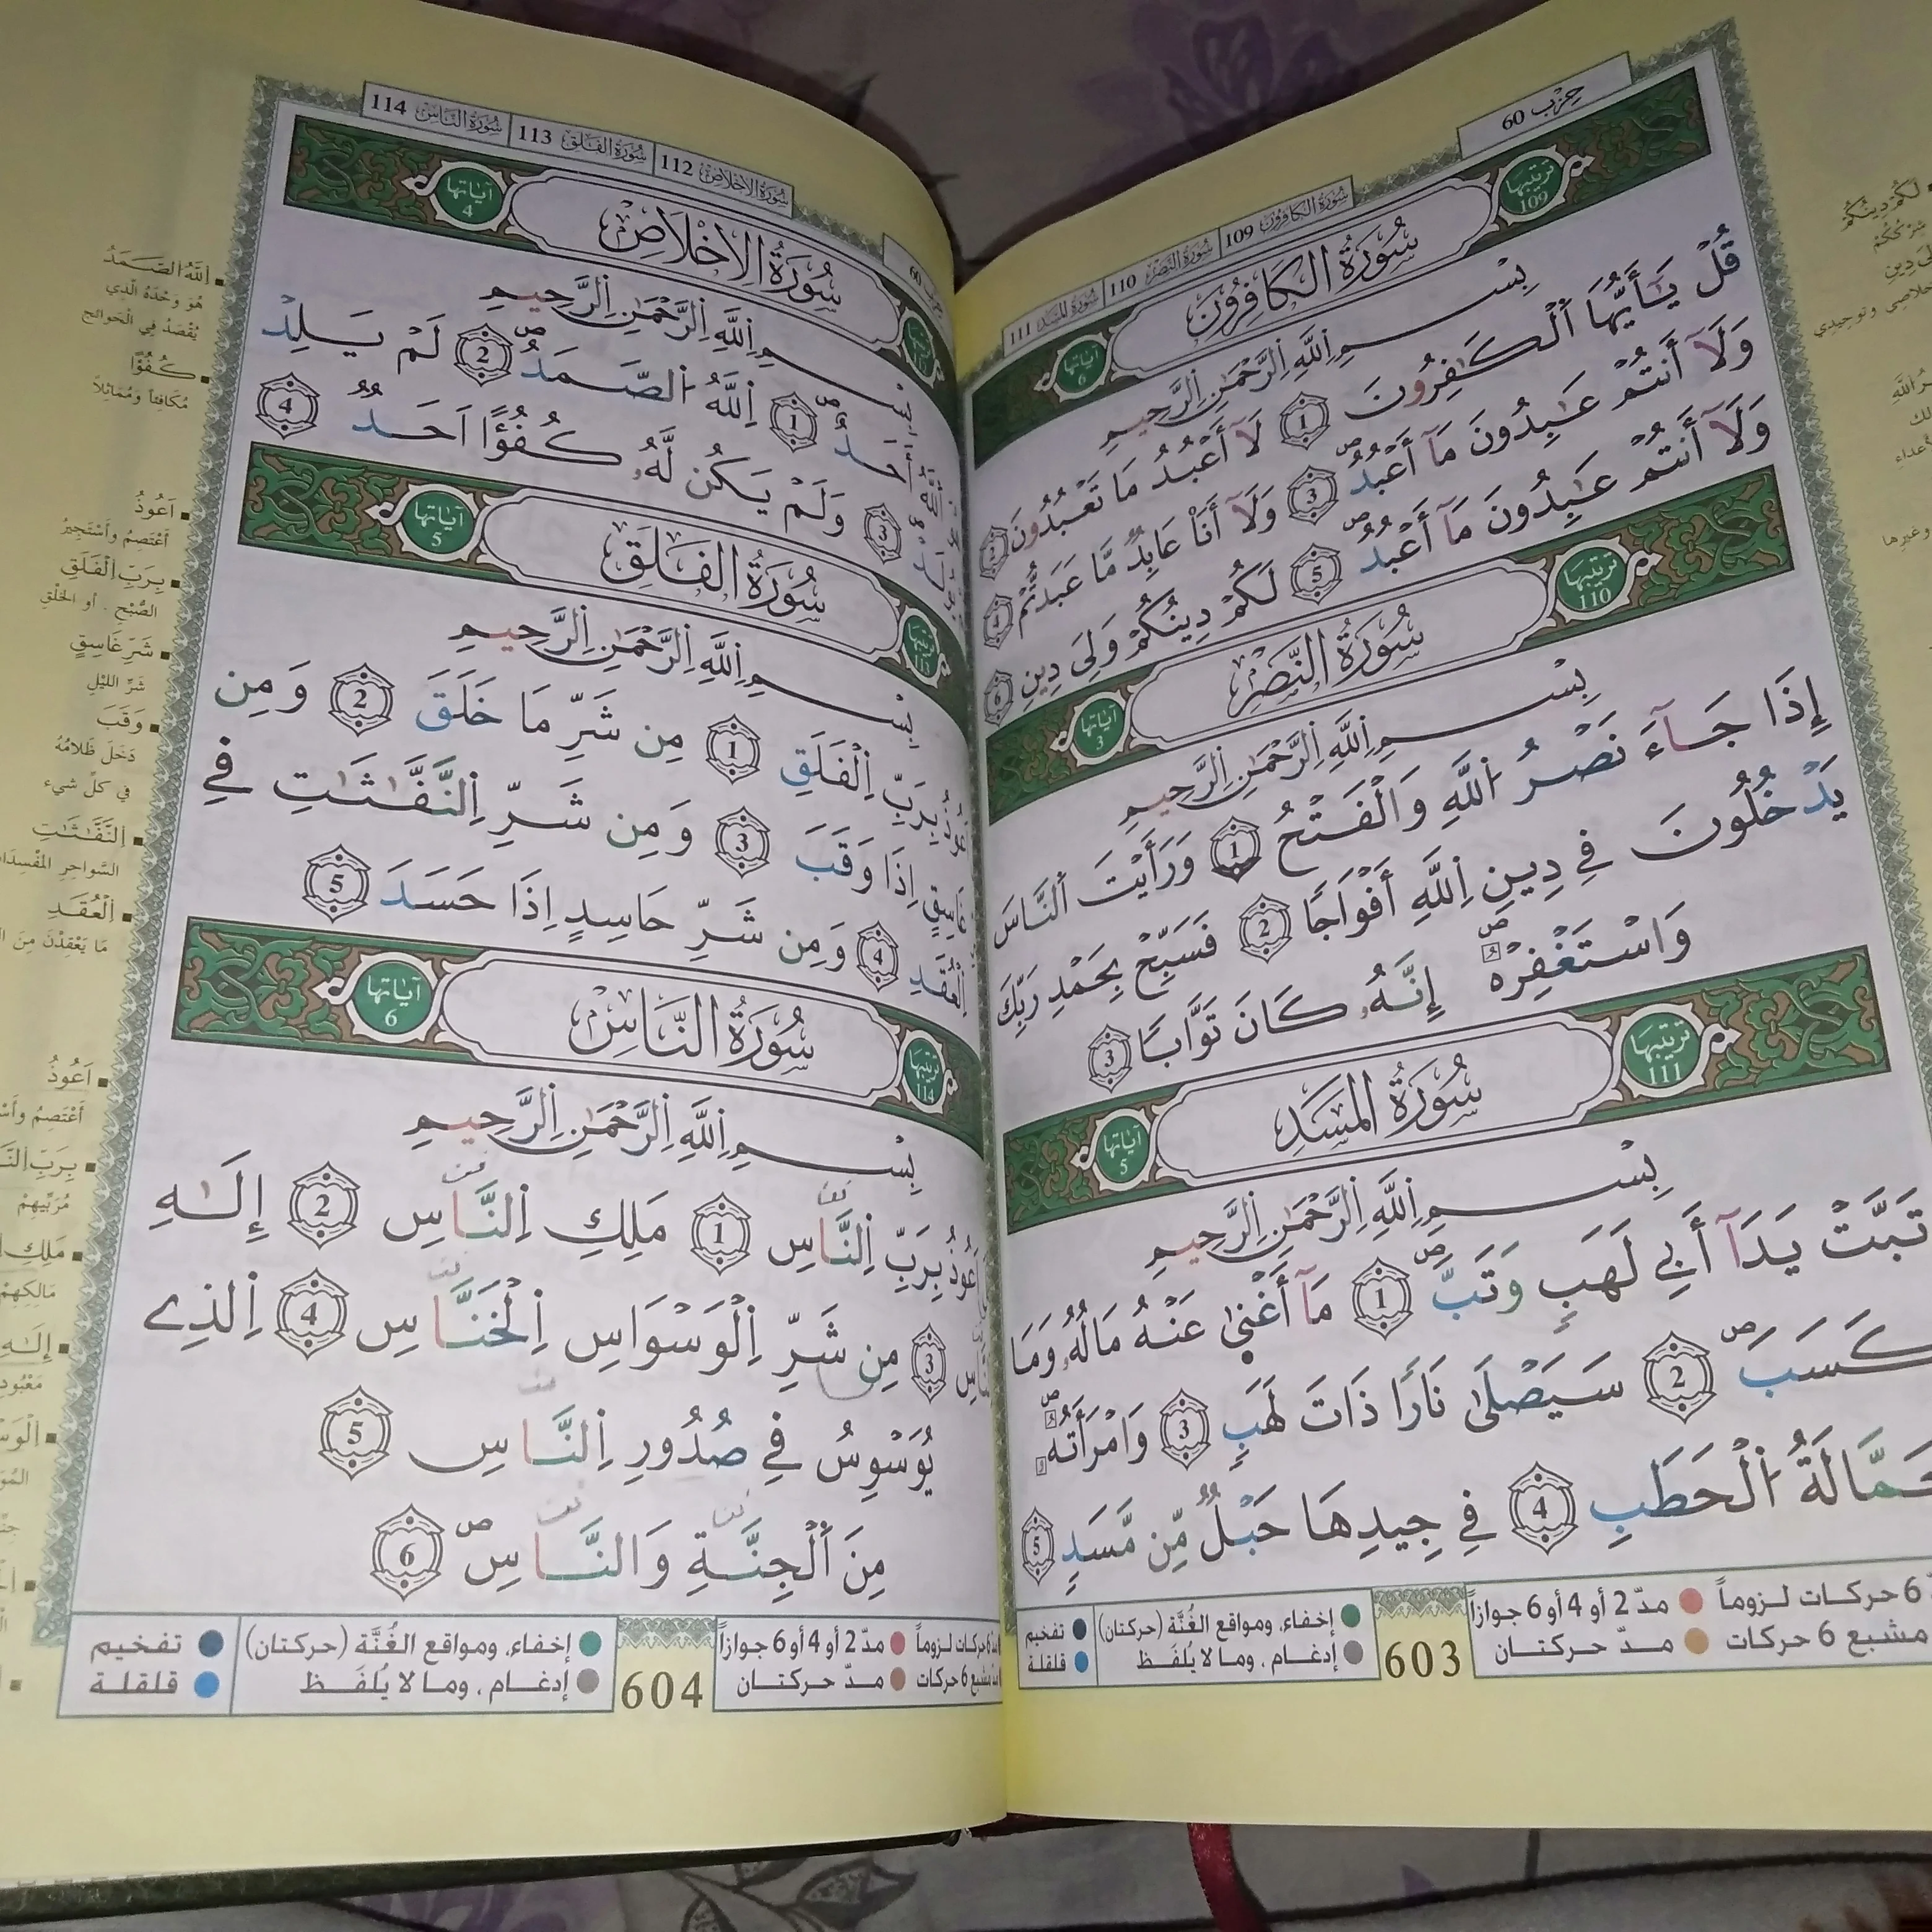 حِزْب 60
سُورَةُ الكَافِرُون 109 سُورَةُ النَّصْر 110 سُورَةُ المَسَد 111
تَرتيبُها 109 سُورَةُ الكَافِرُون آيَاتها 6
بِسْمِ اِللَّهِ اِلرَّحْمَٰنِ اِلرَّحِيمِ
قُلْ يَٰٓأَيُّهَا اَلْكَٰفِرُونَ 1 لَآ أَعْبُدُ مَا تَعْبُدُونَ 2
وَلَآ أَنتُمْ عَٰبِدُونَ مَآ أَعْبُدُ 3 وَلَآ أَنَا۠ عَابِدٌ مَّا عَبَدتُّمْ 4
وَلَآ أَنتُمْ عَٰبِدُونَ مَآ أَعْبُدُ 5 لَكُمْ دِينُكُمْ وَلِىَ دِينِ 6
تَرتيبُها 110 سُورَةُ النَّصْرِ آيَاتها 3
بِسْمِ اِللَّهِ اِلرَّحْمَٰنِ اِلرَّحِيمِ
إِذَا جَآءَ نَصْرُ اُللَّهِ وَالْفَتْحُ 1 وَرَأَيْتَ اَلنَّاسَ
يَدْخُلُونَ فِي دِينِ اِللَّهِ أَفْوَاجًا 2 فَسَبِّحْ بِحَمْدِ رَبِّكَ
وَاسْتَغْفِرْهُ إِنَّهُۥ كَانَ تَوَّابًا 3
تَرتيبُها 111 سُورَةُ المَسَدِ آيَاتها 5
بِسْمِ اِللَّهِ اِلرَّحْمَٰنِ اِلرَّحِيمِ
تَبَّتْ يَدَآ أَبِي لَهَبٍ وَتَبَّ 1 مَآ أَغْنىٰ عَنْهُ مَالُهُۥ وَمَا
كَسَبَ 2 سَيَصْلَىٰ نَارًا ذَاتَ لَهَبٍ 3 وَامْرَأَتُهُ
حَمَّالَةُ اُلْحَطَبِ 4 فِي جِيدِهَا حَبْلٌ مِّن مَّسَدٍ 5
6 حركات لـزوماً مدّ 2 أو 4 أو 6 جوازاً إخفاء، ومواقع الغُنَّة (حركتان) تفخيم
مشبع 6 حركات مـدّ حركتـان إدغـام ، وما لا يُلفَـظ قلقلة
603
لَكُمْ دِينُكُمْ
سُورَةُ الاِخْلَاص 112 سُورَةُ الفَلَق 113 سُورَةُ النَّاس 114
سُورَةُ الاِخْلَاصِ آيَاتها 4
بِسْمِ اِللَّهِ اِلرَّحْمَٰنِ اِلرَّحِيمِ
أَحَدٌ 1 اِللَّهُ اُلصَّمَدُ 2 لَمْ يَلِدْ
3 وَلَمْ يَكُن لَّهُۥ كُفُؤًا اَحَدٌ 4
سُورَةُ الفَلَقِ آيَاتها 5
بِسْمِ اِللَّهِ اِلرَّحْمَٰنِ اِلرَّحِيمِ
بِرَبِّ اِلْفَلَقِ 1 مِن شَرِّ مَا خَلَقَ 2 وَمِن
غَاسِقٍ اِذَا وَقَبَ 3 وَمِن شَرِّ اِلنَّفَّٰثَٰتِ فِي
اِلْعُقَدِ 4 وَمِن شَرِّ حَاسِدٍ اِذَا حَسَدَ 5
تَرتيبُها 114 سُورَةُ النَّاسِ آيَاتها 6
بِسْمِ اِللَّهِ اِلرَّحْمَٰنِ اِلرَّحِيمِ
بِرَبِّ اِلنَّاسِ 1 مَلِكِ اِلنَّاسِ 2 إِلَٰهِ
3 مِن شَرِّ اِلْوَسْوَاسِ اِلْخَنَّاسِ 4 اِلذِے
يُوَسْوِسُ فِي صُدُورِ اِلنَّاسِ 5
مِنَ اَلْجِنَّةِ وَالنَّاسِ 6
مدّ 2 أو 4 أو 6 جوازاً إخفاء، ومواقع الغُنَّة (حركتان) تفخيم
مـدّ حركتـان إدغـام ، وما لا يُلفَـظ قلقلة
604
اِللَّهُ الصَّمَدُ
هُوَ وَحْدَهُ الَّذِي
يُقْصَدُ فِي الْحَوائِج
كُفُؤًا
مُكَافِئاً ومُمَاثِلاً
اَعُوذُ
أَعْتَصِمُ وأَسْتَجِيرُ
بِرَبِّ اِلْفَلَقِ
الصُّبْحِ . أو الخَلْقِ
شَرِّ غَاسِقٍ
شَرِّ اللَّيْلِ
وَقَبَ
دَخَلَ ظَلامُهُ
في كلِّ شيء
اِلنَّفَّٰثَٰتِ
السَّواحِرِ المُفْسِدَاتِ
اِلْعُقَدِ
مَا يَعْقِدْنَ مِنَ
اَعُوذُ
أَعْتَصِمُ
مُرَبِّيهِمْ
مَالِكِهِمْ